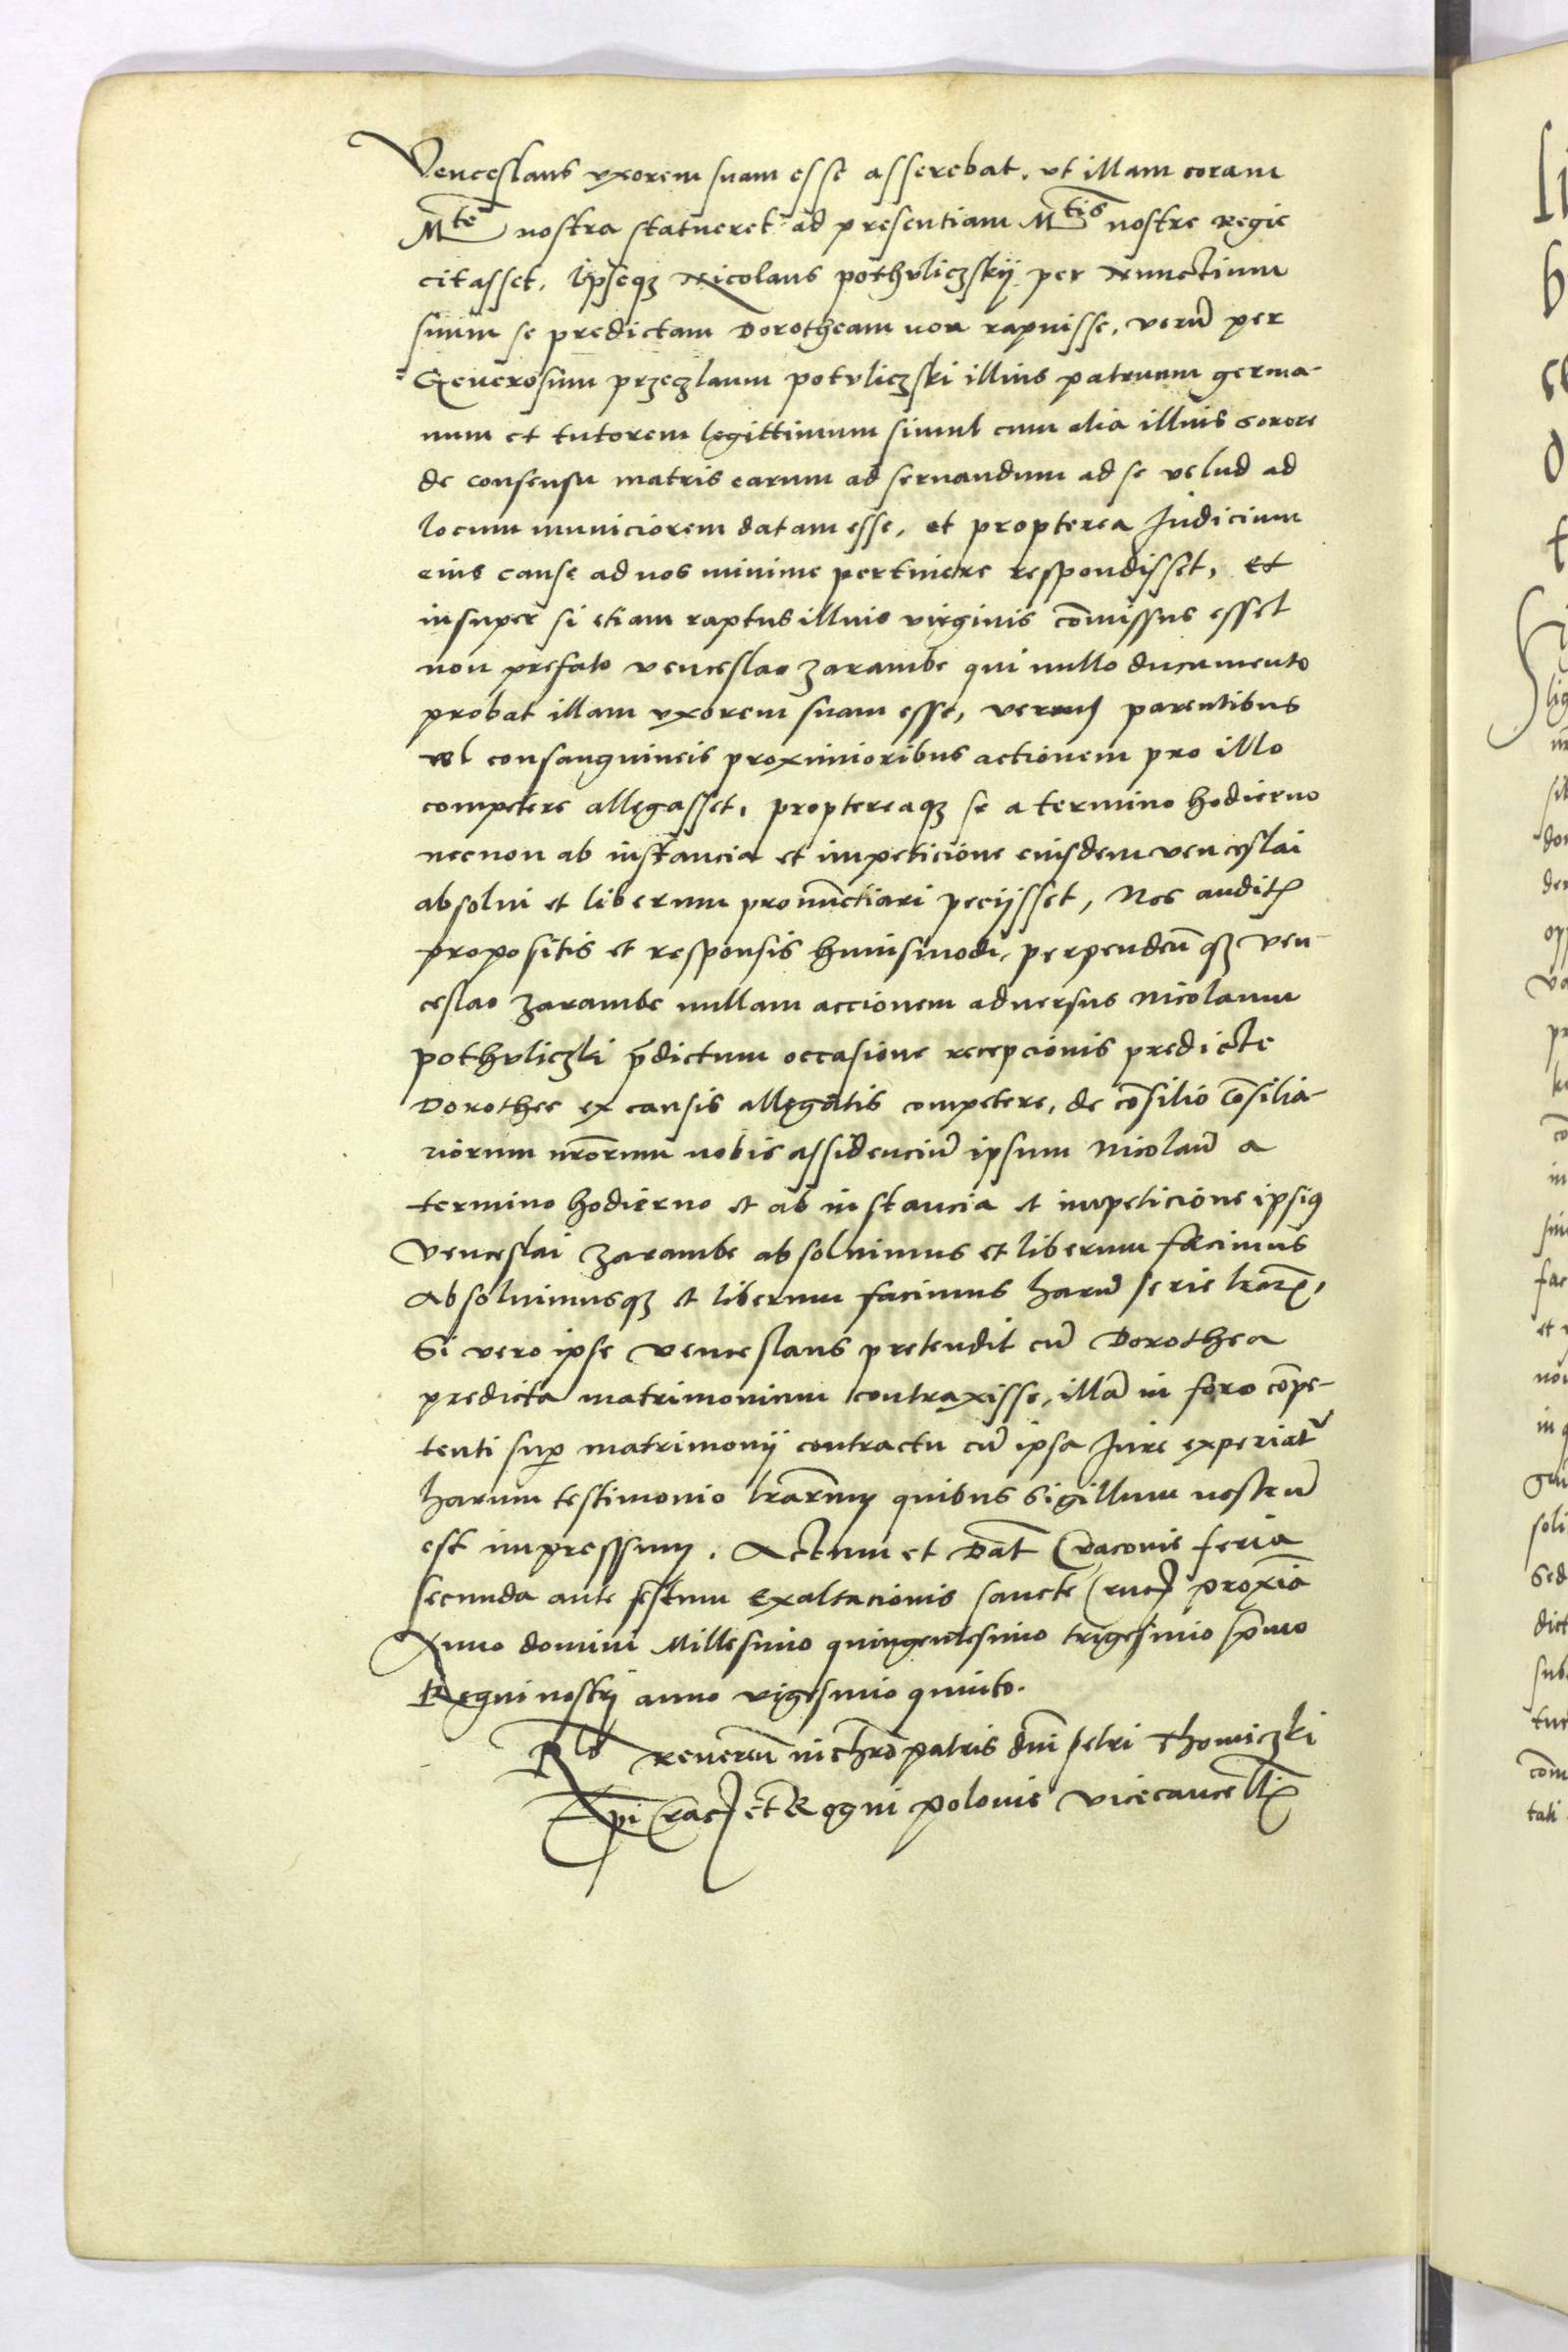 Venceslaus vxorem suam esse asserebat, vt illam coram
Mte nostra statueret ad presentiam Mtis nostre Regie
citasset, Ipseqȝ Nicolaus pothvliczskij per Nunctium
suum se predictam Dorotheam non rapuisse, verū per
Generosum przeczlaum potvliczski illius patruum germa-
num et tutorem legittimum simul cum alia illius sorore
de consensu matris earum ad seruandum ad se velud ad
locum municiorem datam esse, et propterea Iudicium
eius cause ad nos minime pertinere respondisset, Et
insuper si etiam raptus illius virginis cōmissus esset
non prefato venceslao zarambe qui nullo documento
probat illam vxorem suam esse, verum parentibus
vel consanguineis proximioribus actionem pro illo
competere allegasset, proptereaqȝ se a termino hodierno
necnon ab instancia et impeticione eiusdem venceslai
absolui et liberum pronūctiari peciisset, Nos auditꝭ
propositis et responsis huiusmodi, perpendeñ qȝ Ven-
ceslao zarambe nullam accionem aduersus Nicolaum
pothvliczki p̄dictum occasione recepcionis predicte
Dorothee ex causis allegatis competere, de cōsilio cōsilia-
riorum nr̄orum nobis assidenciū ipsum Nicolaū a
termino hodierno et ab instancia et impeticione ipsiꝰ
Venceslai zarambe absoluimus et liberum facimus
Absoluimusqȝ et liberum facimus harū serie lr̄arꝝ,
Si vero ipse venceslaus pretendit cū Dorothea
predicta matrimonium contraxisse, illā in foro cōpe-
tenti sup̱ matrimonij contractu cū ipsa Iure experiat̃
harum testimonio lr̄arum quibus Sigillum nostrū
est impressum. Actum et Dat̄ Cracovie feria
secunda ante festum Exaltacionis sancte Crucꝭ proxiā
Anno domini Millesimo quingentesimo trigesimo p̄mo
Regni nostrj anno vigesimo quinto.
Rlo Reuereñ in chr̄o patris dn̄i petri Thomiczki
Ep̄i Cracꝭ et Regni polonie vicecancell̄